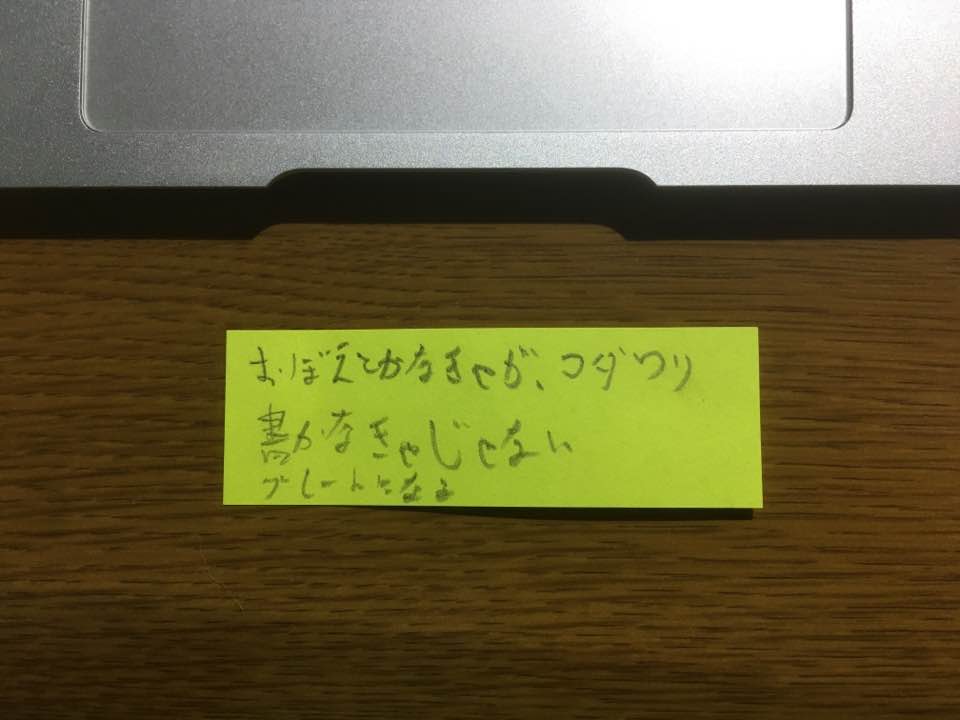 おぼえとかなきゃが、コダワリ
書かなきゃじゃない
プレートになる